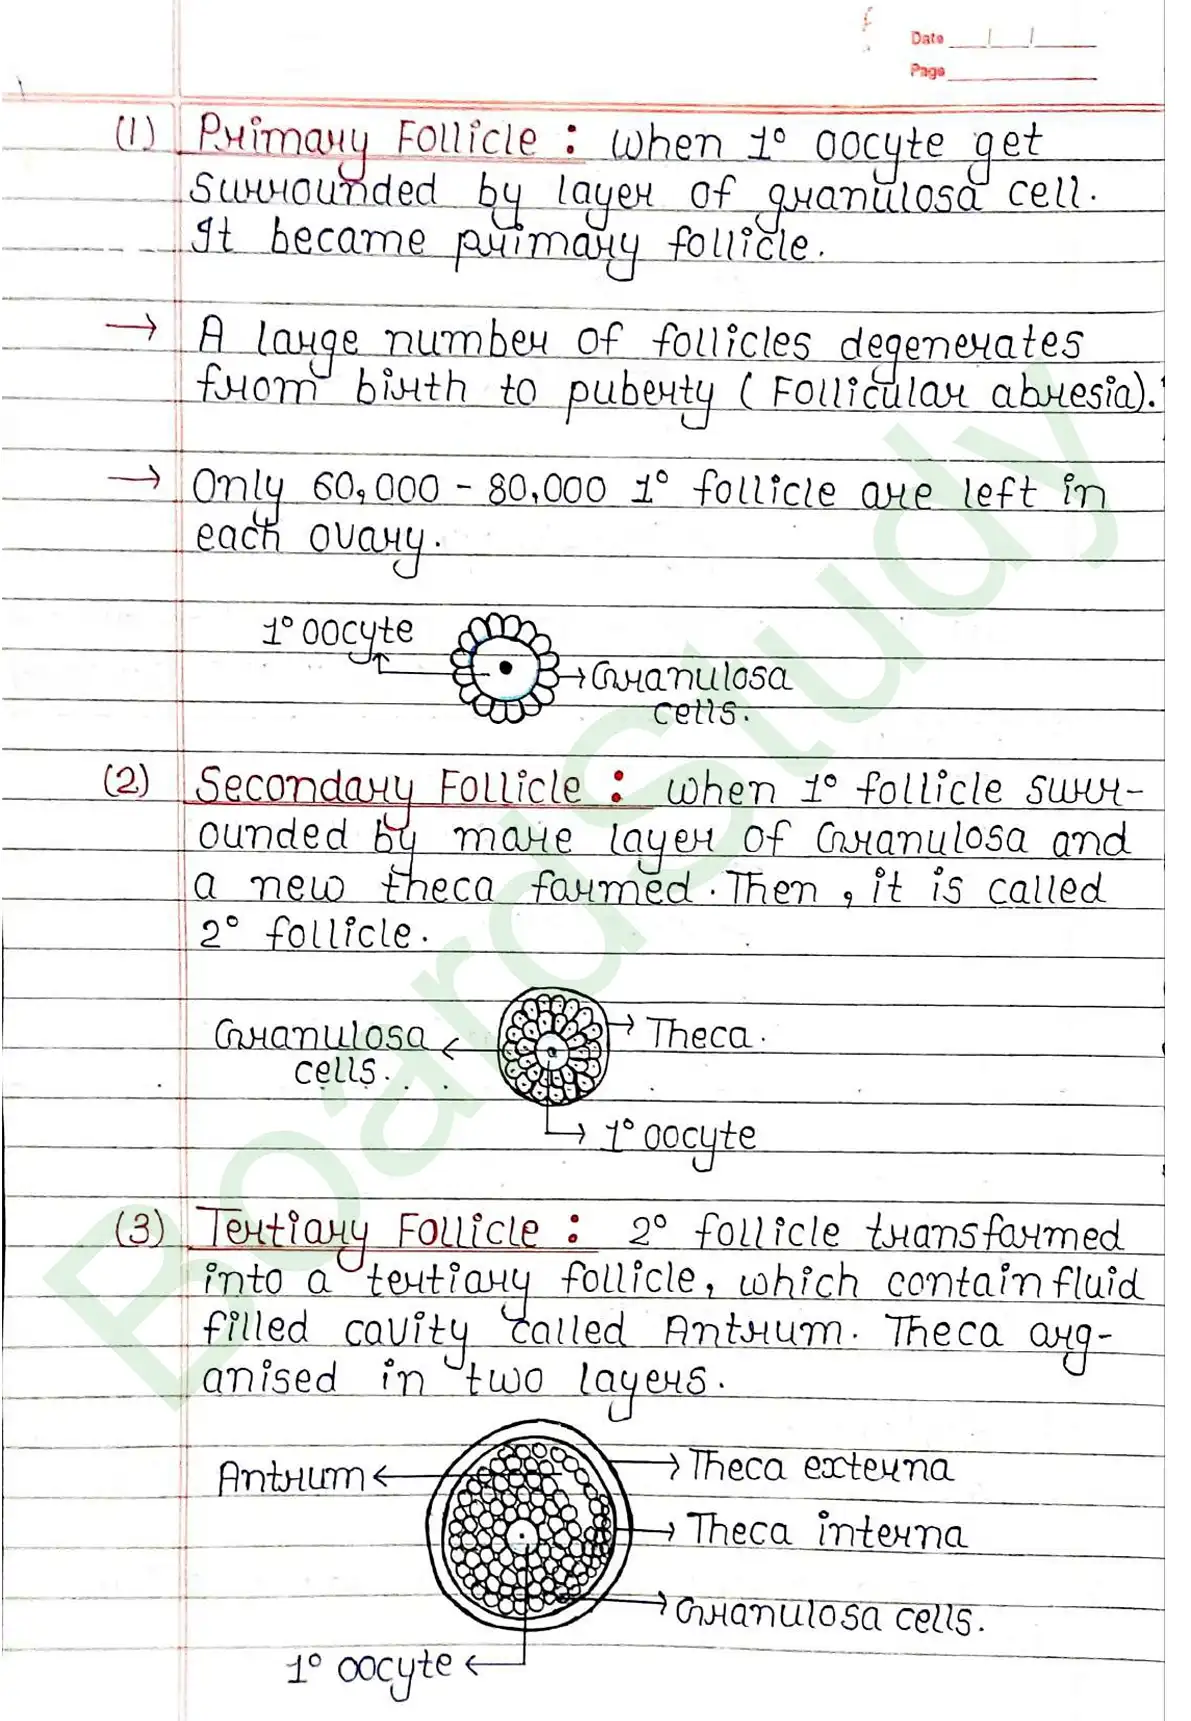 Date
Page
(1) Primary Follicle : when 1° oocyte get
surrounded by layer of granulosa cell.
It became primary follicle.
→ A large number of follicles degenerates
from birth to puberty ( Follicular abresia).
→ Only 60,000 - 80,000 1° follicle are left in
each ovary.
1° oocyte
→ Granulosa
cells.
(2) Secondary Follicle : when 1° follicle surr-
ounded by more layer of Granulosa and
a new theca formed. Then, it is called
2° follicle.
Granulosa ←
cells.
→ Theca.
→ 1° oocyte
(3) Tertiary Follicle : 2° follicle transformed
into a tertiary follicle, which contain fluid
filled cavity called Antrum. Theca org-
anised in two layers.
Antrum ←
→ Theca externa
→ Theca interna
→ Granulosa cells.
1° oocyte ←
BoardStudy